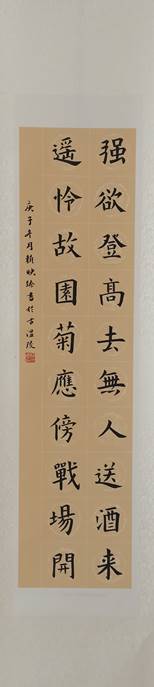 强欲登髙去無人送酒来
遥怜故園菊應傍戰場開
庚子年月 映 書於古温陵